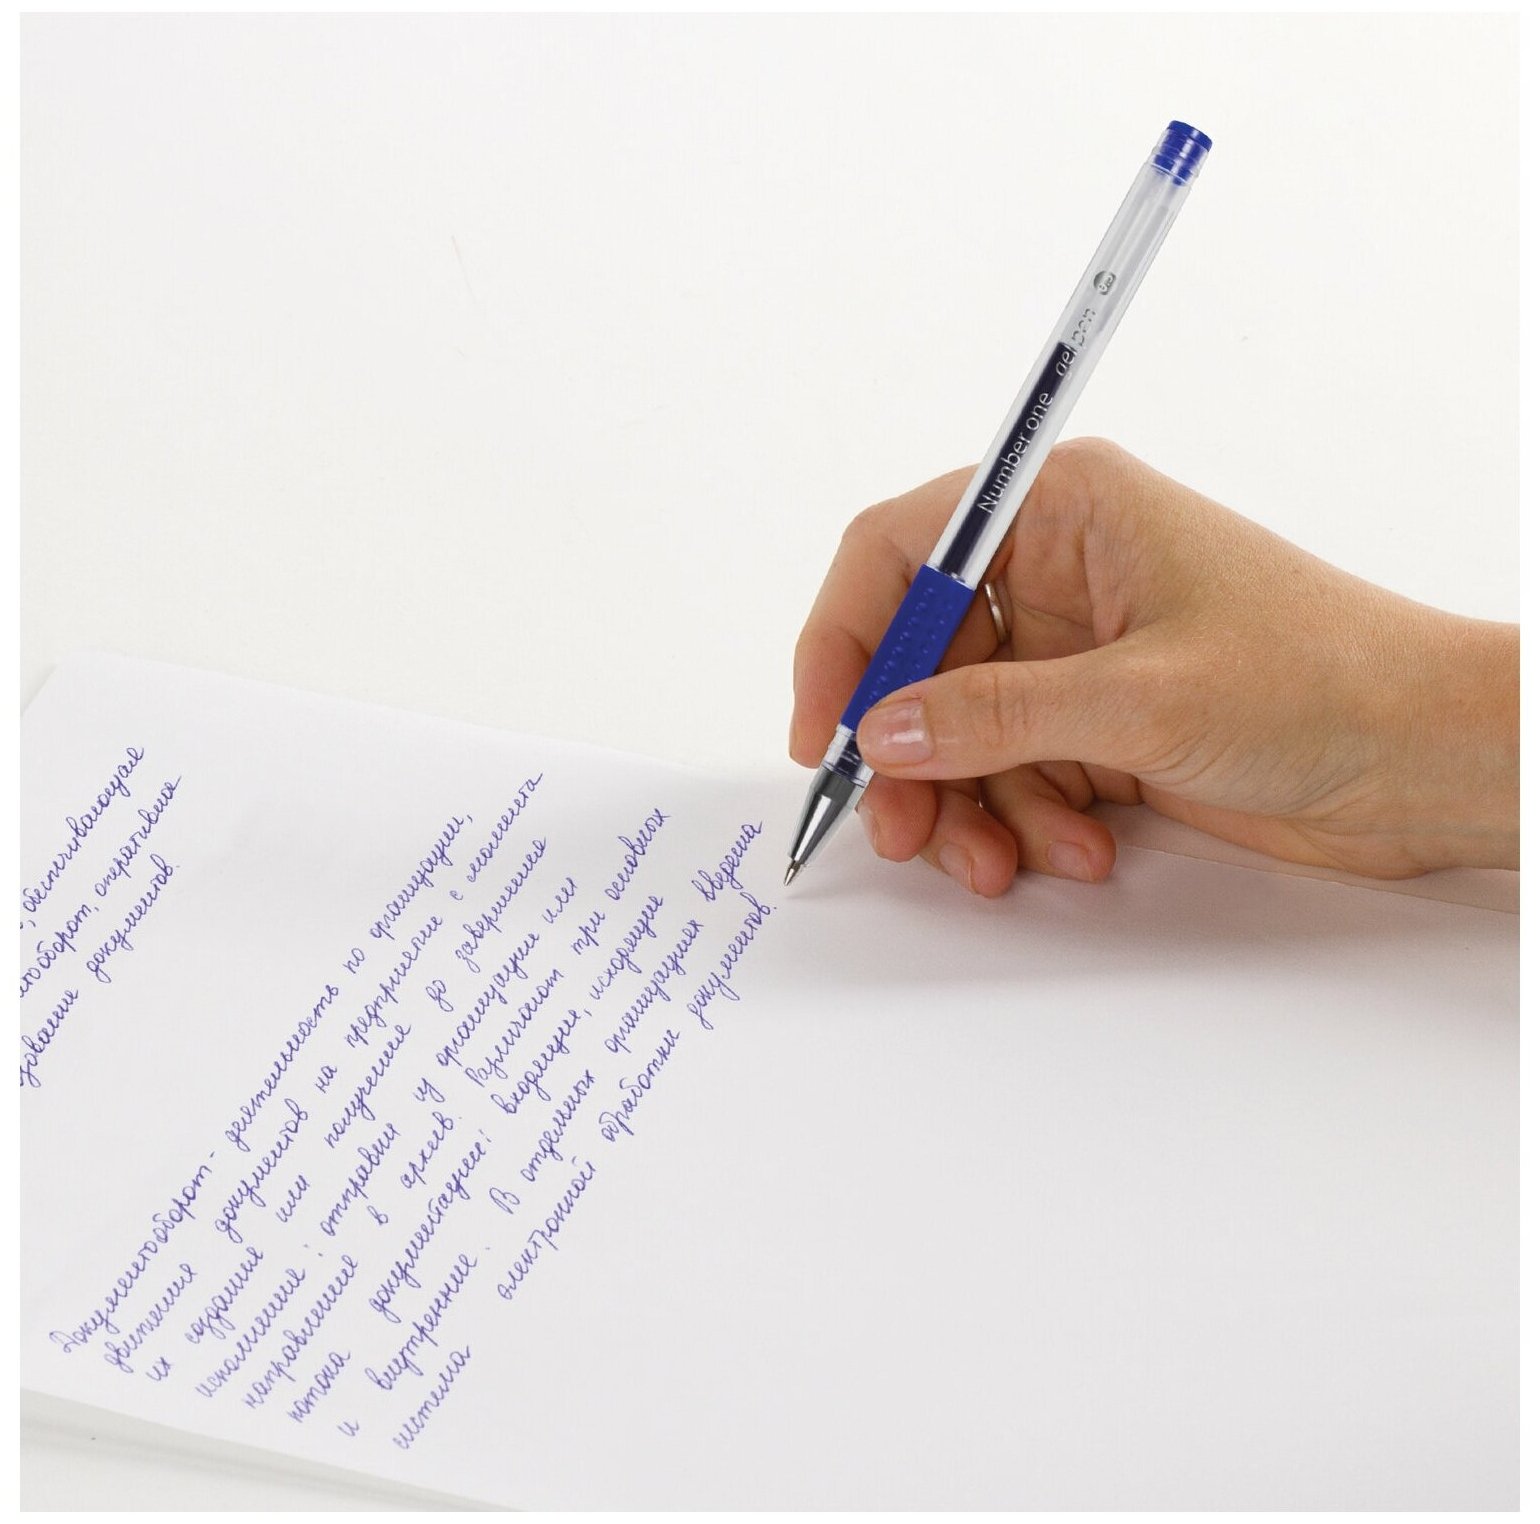 , обеспечивающая
документооборот, оперативное
зование документов.
Документооборот - деятельность по организации
движения документов на предприятие с момента
их создания или получения до завершения
исполнения: отправки из организации или
направление в архив. Различают три основных
потока документации: входящие, исходящие
и внутренние. В отдельных организациях введена
система электронной обработки документов.
Number one gel pen